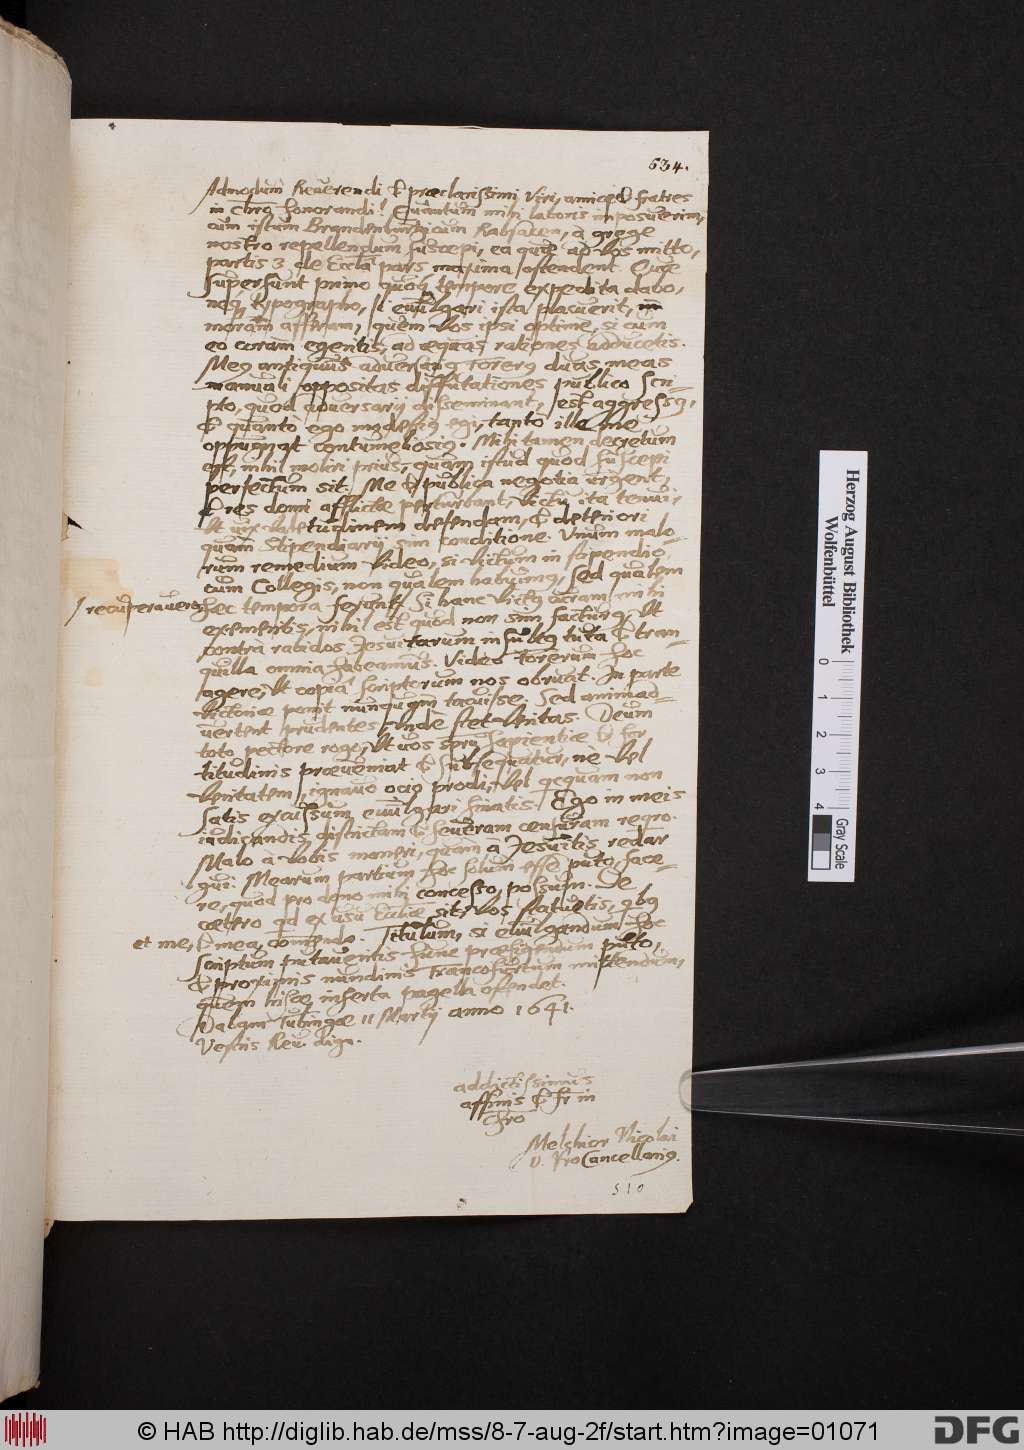 534.
Admodum Reverendi & præclarissimi Viri, amici & fratres
in Chro honorandi! Quantum mihi laboris imposuerim,
cum istum Brandenburgicum Rabsaken, à grege
nostro repellendum suscepi, ea quæ ad Vos mitto,
partis 3 de Eccla pars maxima ostendent. Quæ
supersunt primo quoq tempore expedita dabo,
neq typographo, si evulgari ista placuerit,
moram afferam, quem Vos ipsi optime, si cum
eo coram egeritis, ad æquas rationes adducetis.
Meq antiquus adversariq Torerq duas meas
manuali oppositas disputationes publico scri-
pto, quod adversarij disseminant, est aggressq,
& quanto ego modestiq egi, tanto ille me
oppugnat contumeliosiq. Mihi tamen decretum
est, nihil moliri prius, quam istud quod suscepi
perfectum sit. Me & publica negotia urgent,
& res domi afflictæ perturbant, victu ita tenui,
Ut vix valetudinem defendam, & deteriori
quam Stipendiarij sim conditione. Unum malo-
rum remedium video, si victum in stipendio,
cum Collegis, non qualem habuimq, sed qualem
/ recuperavero,
hæc tempora ferunt / Si hanc victq curam mihi
exemeritis, nihil est quod non sim facturq, Ut
contra rabidos Jesuitarum insultq tuta & tran-
quilla omnia habeamus. Video Torerum hoc
agere, Ut copia scriptorum nos obruat. In parte
victoriæ ponit nunquam tacuisse. Sed animad-
vertent prudentes, unde stet veritas. Deum
toto pectore rogo, Ut vos spru sapientiæ & for
titudinis præveniat & subsequatur, ne vel
veritatem, ignavo ocio prodi, vel qcquam non
satis excussum evulgari sinatis. Ego in meis
iudicandis districtam & severam censuram reqro.
Malo à Vobis moneri, quam à Jesuitis redar
gui. Mearum partium hoc solum esse puto, face-
re, quod pro dono mihi concesso, possum. De
cætero qd ex usu Eccliæ sit, Vos statuetis, qbq
et me, & mea, comendo. Titulum, si evulgandum hoc
scriptum putaveritis hunc præfigendum puto,
& proximis nundinis Francofurtum mittendum,
quem hisce inserta pagella ostendet.
Dabam Tubingæ 11 Martij anno 1641.
Vestris Rev. dign.
addictissimus
affinis & fr in
Chro
Melchior Nicolai
D. ProCancellariq.
510
Herzog August Bibliothek
Wolfenbüttel
0 1 2 3 4
Gray Scale
© HAB http://diglib.hab.de/mss/8-7-aug-2f/start.htm?image=01071
DFG